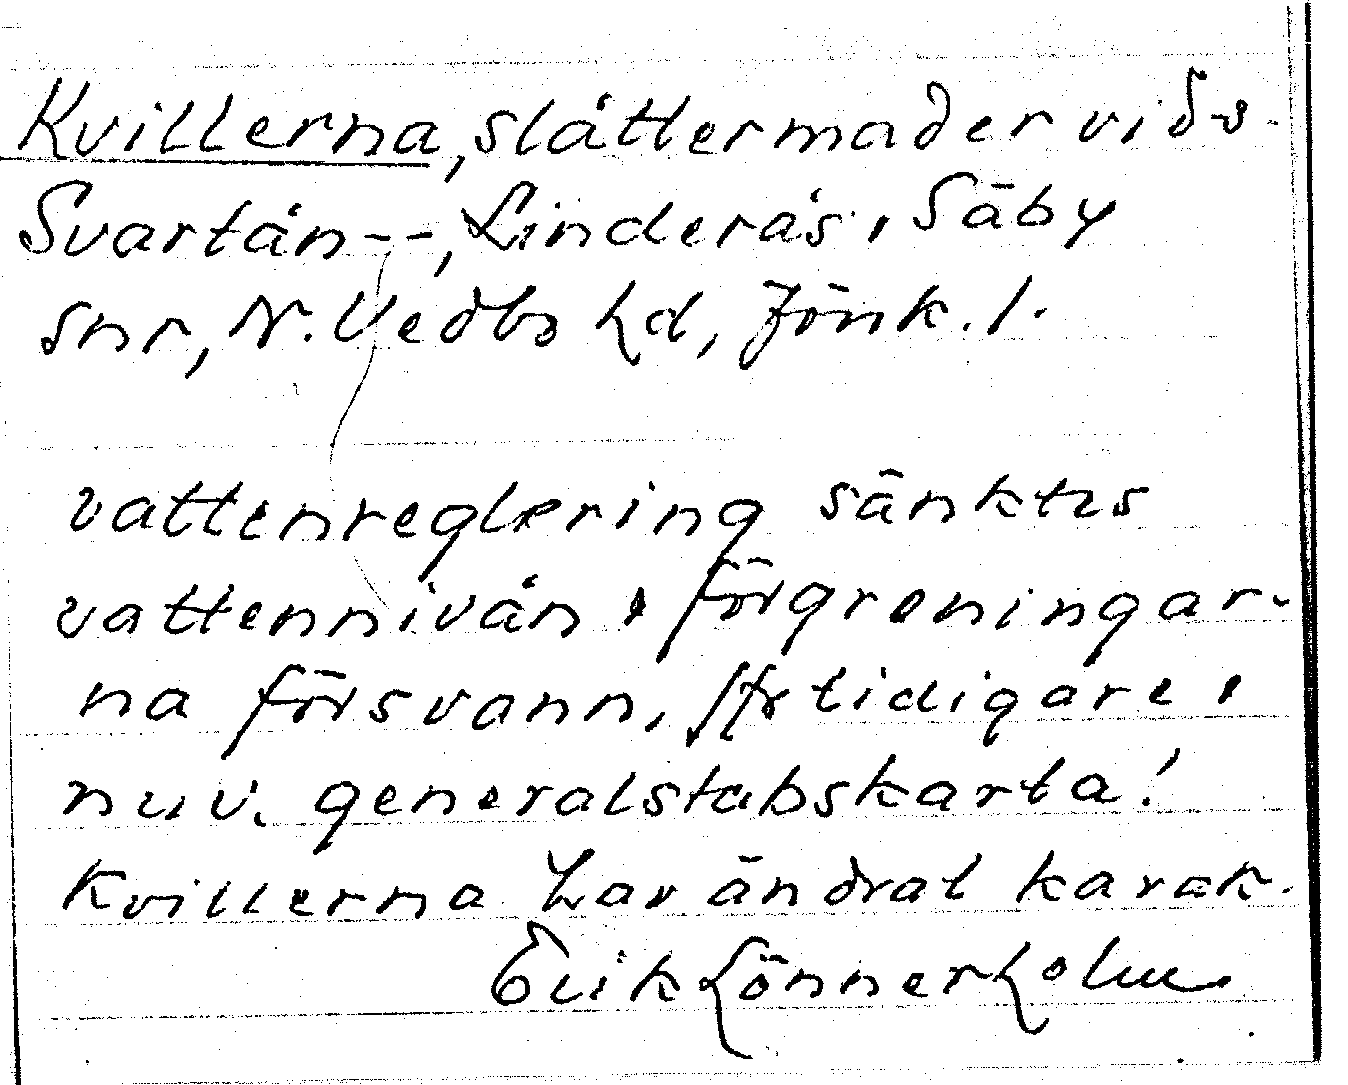 Kvillerna, slåttermader vid v.
Svartån--, Linderås, Säby
snr, N. Vedbo hd, Jönk. l.
vattenreglering sänktes
vattennivån, förgreningar-
na försvann, jfr tidigare,
nuv. generalstabskarta!
Kvillerna har ändrat karak.
Erik Lönnerholm